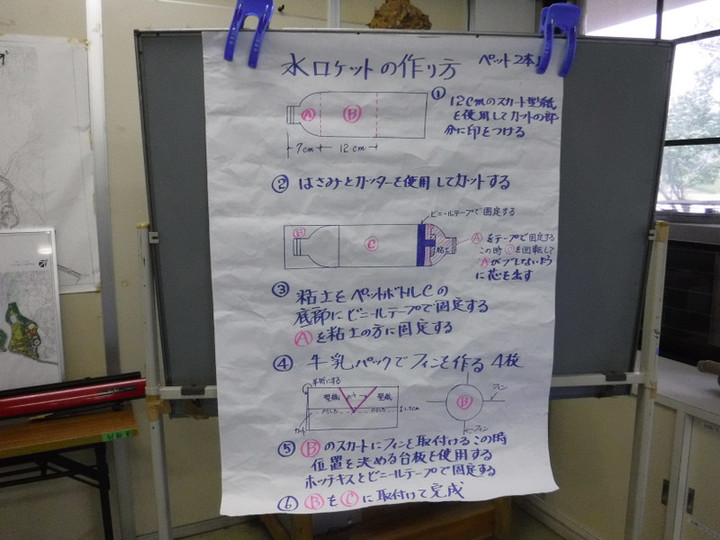 水ロケットの作り方
ペット2本
① 12cmのスカート型紙
を使用してカットの部
分に印をつける
Ⓐ Ⓑ
7cm 12cm
② はさみとカッターを使用してカットする
ビニールテープで固定する
Ⓑ Ⓒ 粘土
Ⓐをテープで固定する
この時Ⓒを回転して
Ⓐがブレしないよう
に芯を出す
③ 粘土をペットボトルCの
底部にビニールテープで固定する
Ⓐを粘土の方に固定する
④ 牛乳パックでフィンを作る 4枚
半折にする
型紙 型紙
フィン
Ⓑ
フィン
⑤ Ⓑのスカートにフィンを取付けるこの時
位置を決める台板を使用する
ホッチキスとビニールテープで固定する
⑥ ⒷをⒸに取付けて完成